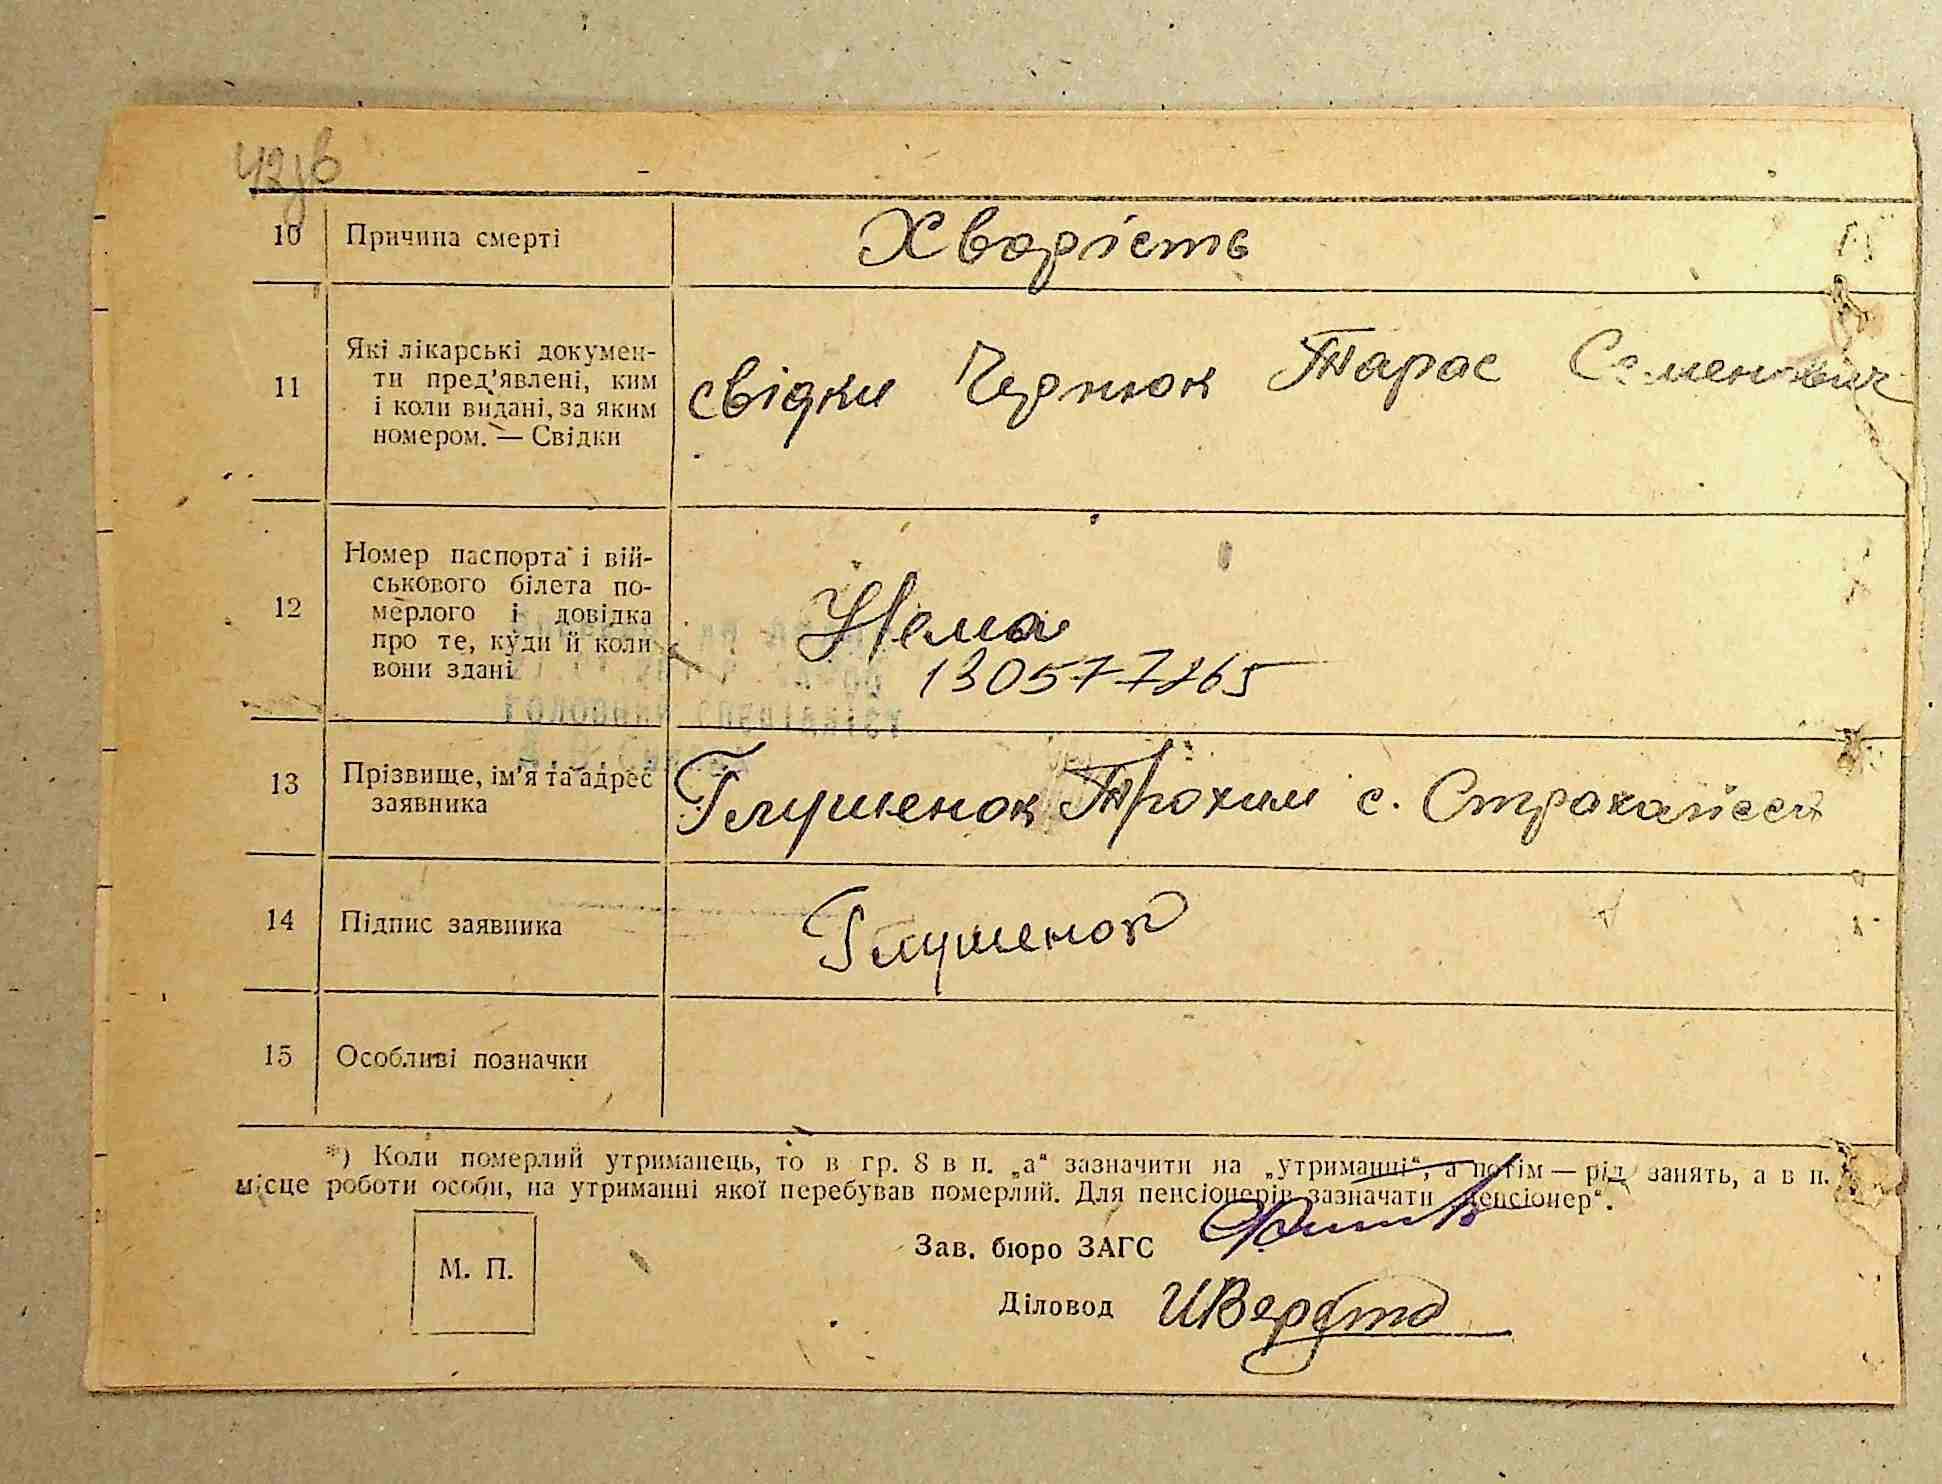 42зв
10 Причина смерті Хворість
11 Які лікарські докумен-
ти пред'явлені, ким
і коли видані, за яким
номером. — Свідки
свідки Чернюк Тарас Семенович
12 Номер паспорта і вій-
ськового білета по-
мерлого і довідка
про те, куди й коли
вони здані
Нема
130577865
13 Прізвище, ім'я та адрес
заявника
Глушенок Трохим с.
14 Підпис заявника Глушенок
15 Особливі позначки
*) Коли померлий утриманець, то в гр. 8 в п. „а“ зазначити на „утриманні“, а потім — рід занять, а в п.
місце роботи особи, на утриманні якої перебував померлий. Для пенсіонерів зазначати „пенсіонер“.
М. П.
Зав. бюро ЗАГС
Діловод